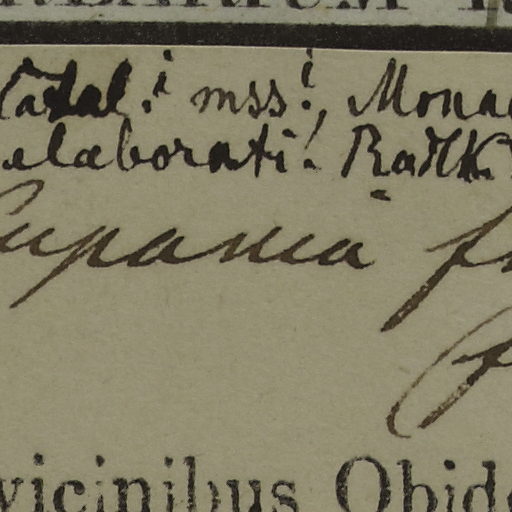 Catal.i mss!, Monac
elaborati! Radlk.
Cupania f
vicinibus Obid